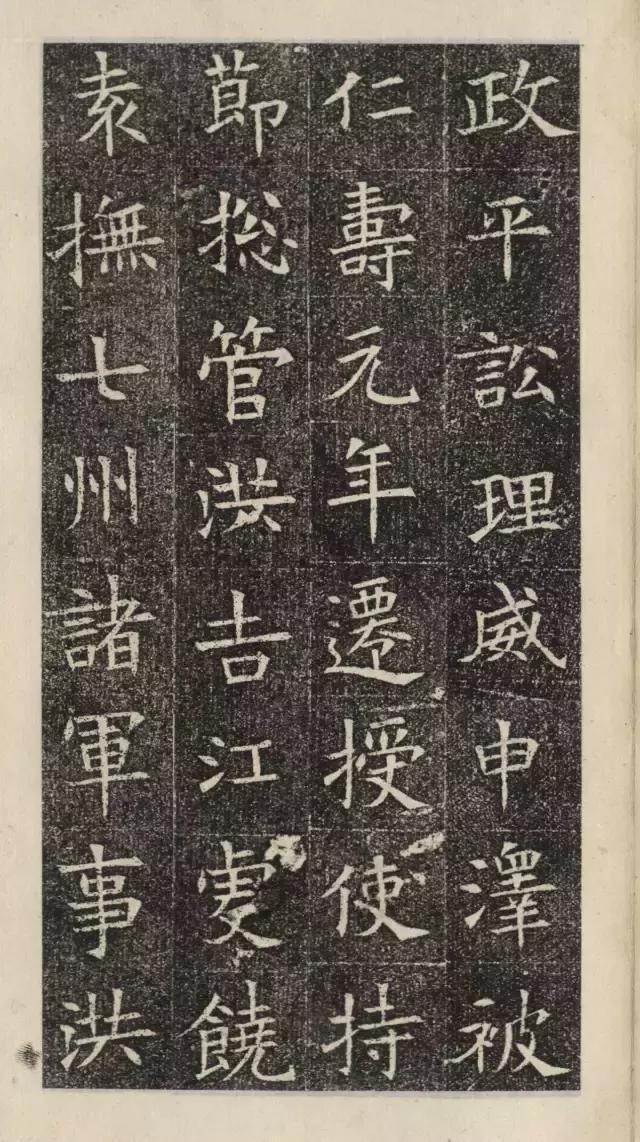 政平訟理威申澤被
仁壽元年遷授使持
莭捴管洪吉江虔饒
袁撫七州諸軍事洪